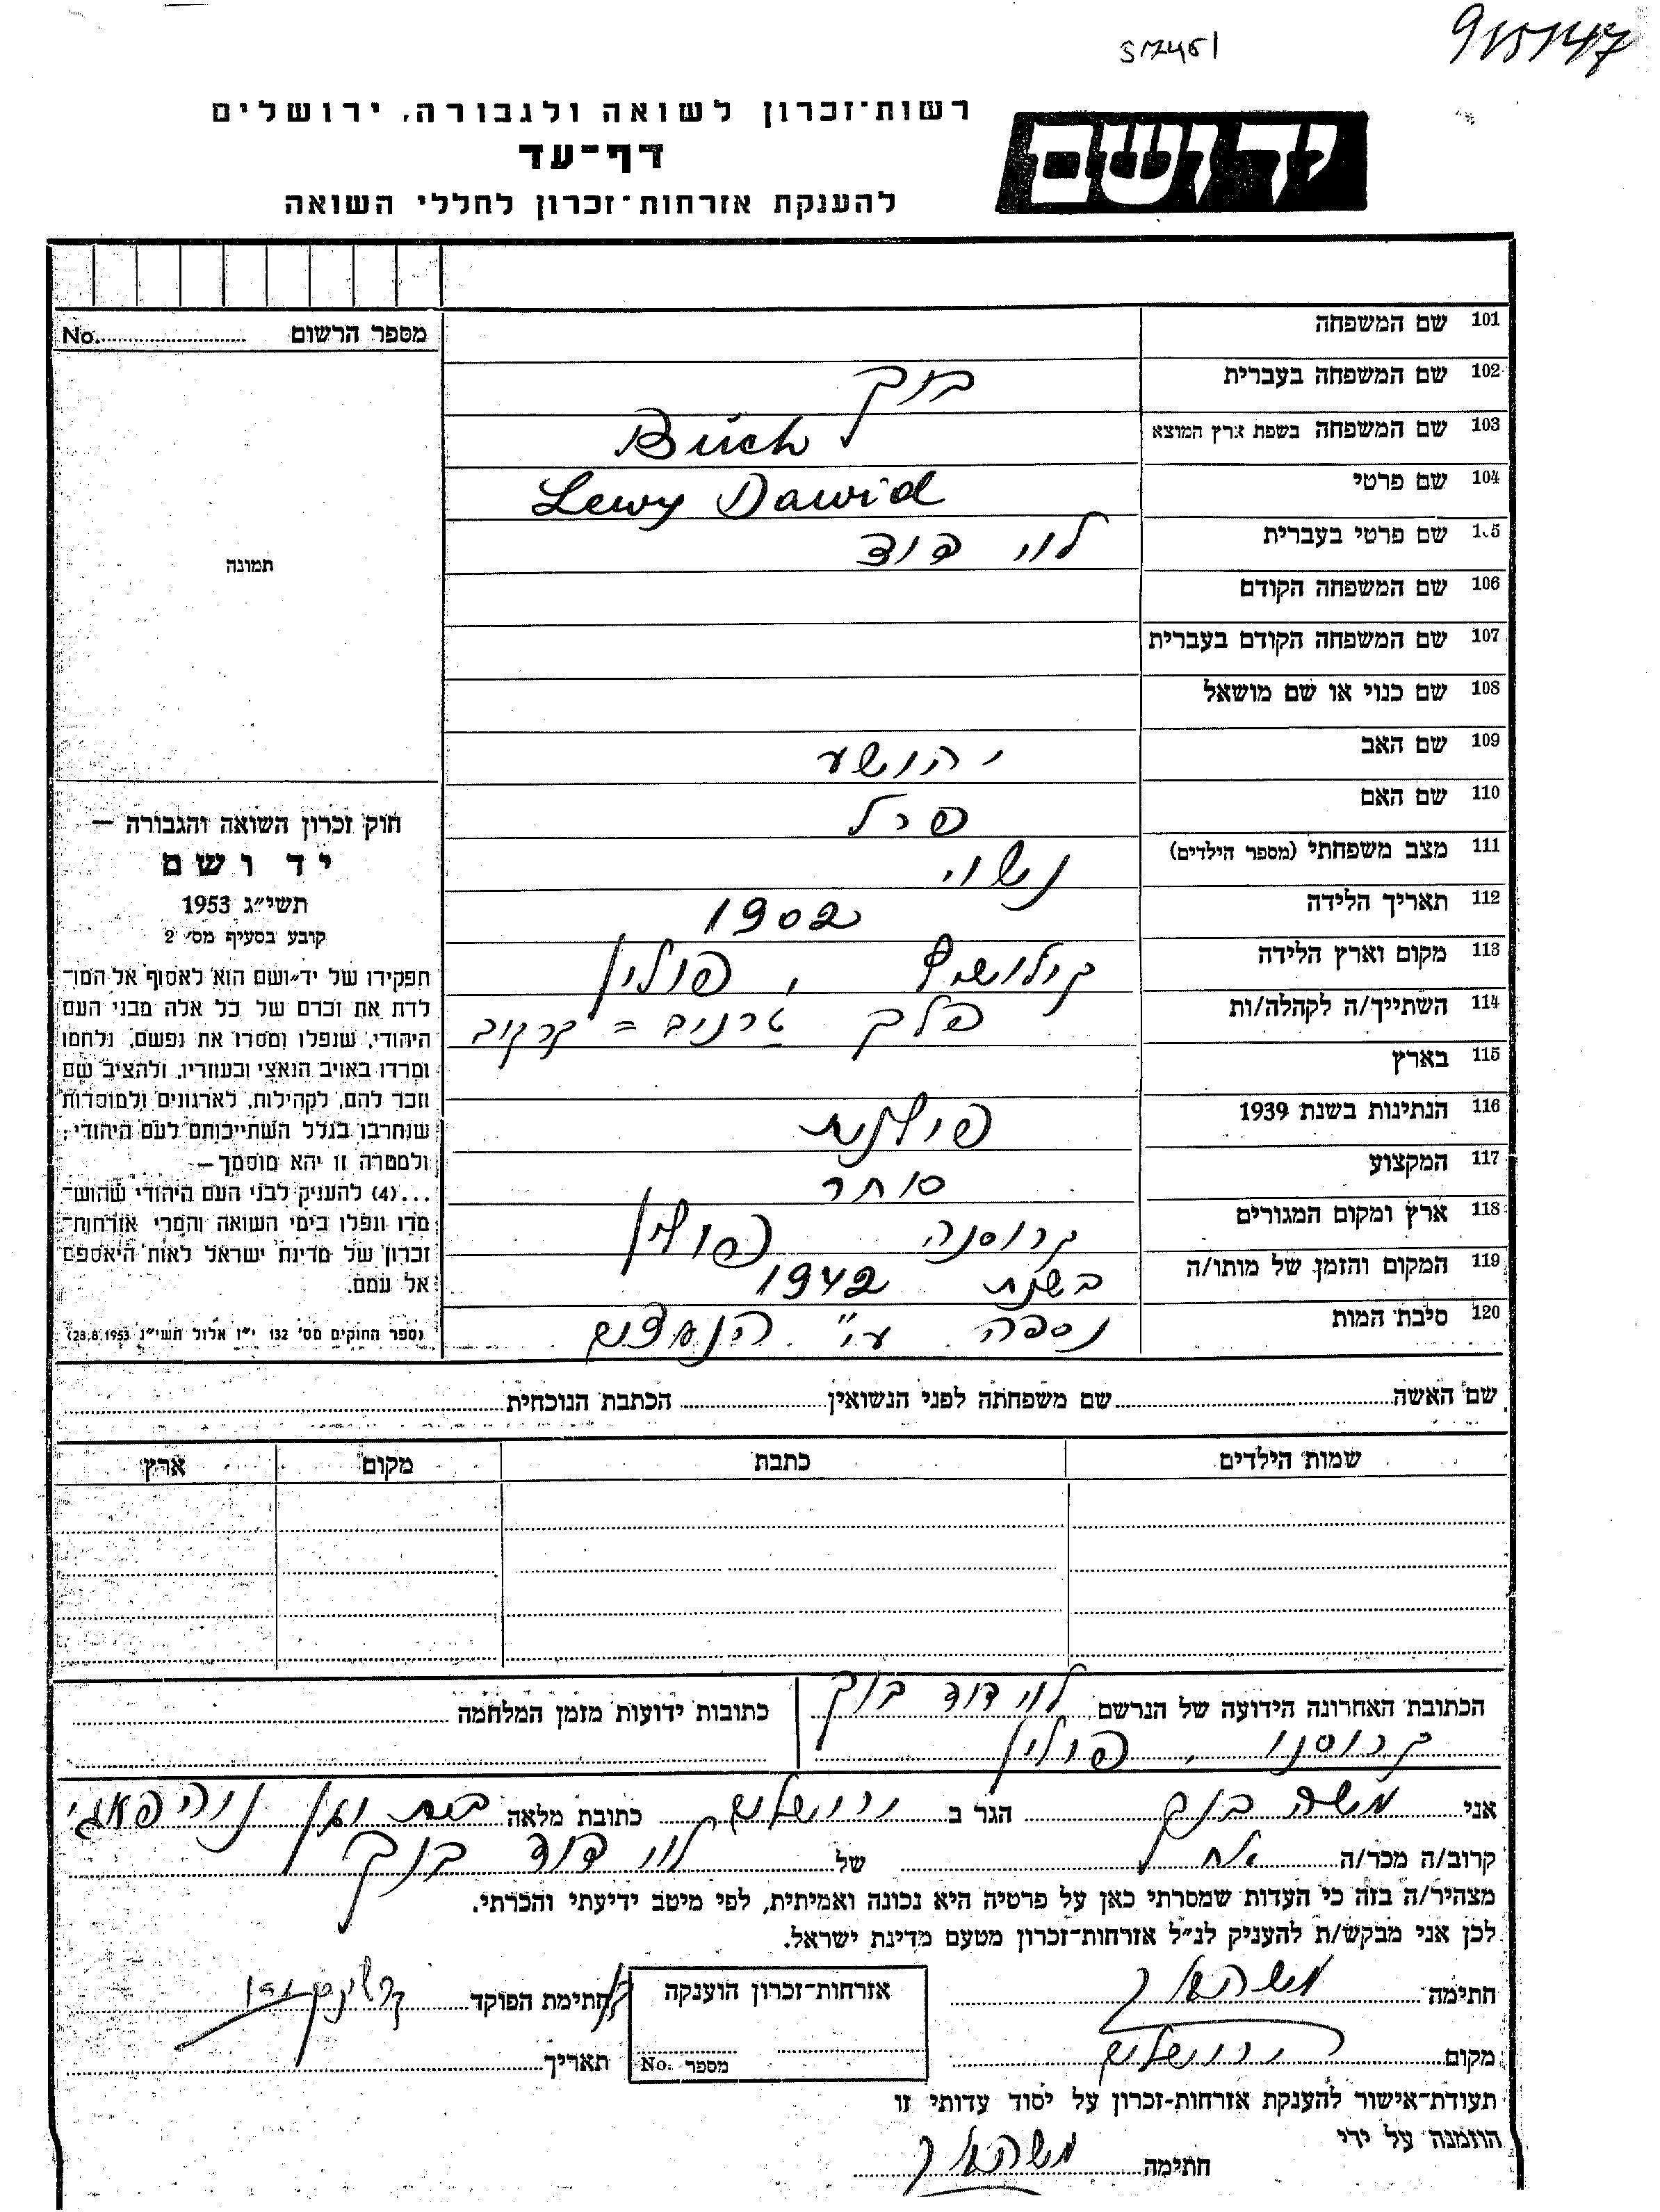 915147
רשות־זכרון לשואה ולגבורה, ירושלים
דף־עד
להענקת אזרחות־זכרון לחללי השואה
יד ושם
מספר הרשום No.
101 שם המשפחה
102 שם המשפחה בעברית בוך
103 שם המשפחה בשפת ארץ המוצא Buch
104 שם פרטי Lewy Dawid
105 שם פרטי בעברית לוי דוד
106 שם המשפחה הקודם
107 שם המשפחה הקודם בעברית
108 שם כנוי או שם מושאל
109 שם האב יהושע
110 שם האם פרל
111 מצב משפחתי (מספר הילדים) נשוי
112 תאריך הלידה 1902
113 מקום וארץ הלידה , פולין
114 השתייך/ה לקהלה/ות פלך טרניב = קרקוב
115 בארץ
116 הנתינות בשנת 1939 פולנית
117 המקצוע סוחר
118 ארץ ומקום המגורים קרוסנה פולין
119 המקום והזמן של מותו/ה בשנת 1942
120 סיבת המות נספה ע"י הנאצים
תמונה
חוק זכרון השואה והגבורה —
יד ושם
תשי״ג 1953
קובע בסעיף מס׳ 2
תפקידו של יד־ושם הוא לאסוף אל המו־
לדת את זכרם של כל אלה מבני העם
היהודי, שנפלו ומסרו את נפשם, נלחמו
ומרדו באויב הנאצי ובעוזריו, ולהציב שם
וזכר להם, לקהילות, לארגונים ולמוסדות
שנחרבו בגלל השתייכותם לעם היהודי;
ולמטרה זו יהא מוסמך —
...(4) להעניק לבני העם היהודי שהוש־
מדו ונפלו בימי השואה והמרי אזרחות־
זכרון של מדינת ישראל לאות היאספם
אל עמם.
(ספר החוקים מס׳ 132 י״ז אלול תשי״ג 28.8.1953)
שם האשה שם משפחתה לפני הנשואין הכתבת הנוכחית
שמות הילדים כתבת מקום ארץ
הכתובת האחרונה הידועה של הנרשם לוי דוד בוך כתובות ידועות מזמן המלחמה
קרוסנו , פולין
אני משה בוך הגר ב ירושלים כתובת מלאה בית וגן
קרוב/ה מכר/ה אח של לוי דוד בוך
מצהיר/ה בזה כי העדות שמסרתי כאן על פרטיה היא נכונה ואמיתית, לפי מיטב ידיעתי והכרתי.
לכן אני מבקש/ת להעניק לנ״ל אזרחות־זכרון מטעם מדינת ישראל.
חתימה אזרחות־זכרון הוענקה חתימת הפוקד
מקום ירושלים מספר No. תאריך
תעודת־אישור להענקת אזרחות־זכרון על יסוד עדותי זו
הוזמנה על ידי
חתימה